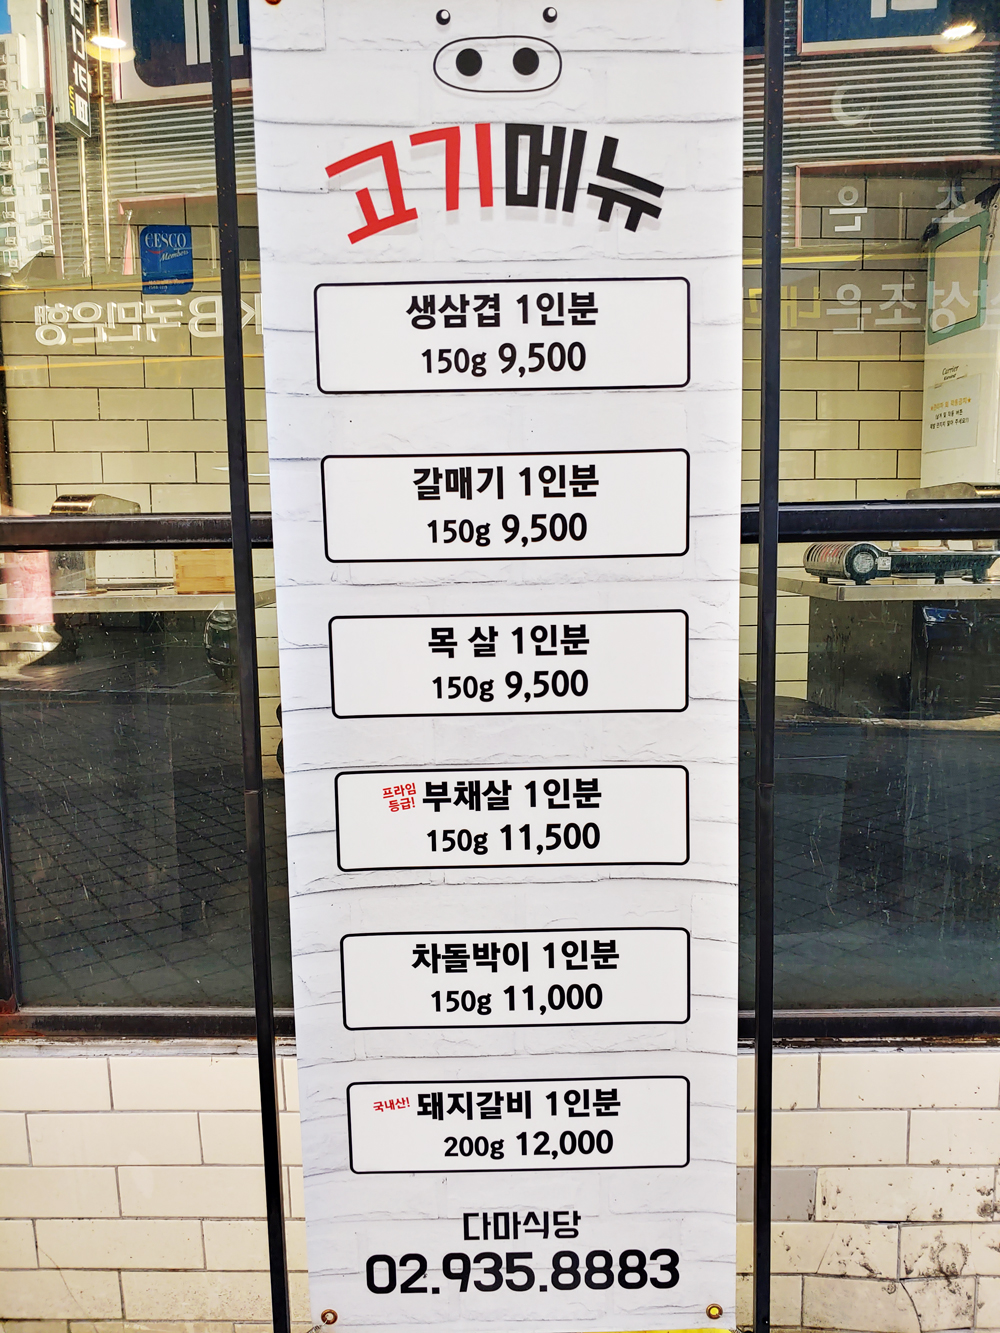 고기메뉴
생삼겹 1인분
150g 9,500
갈매기 1인분
150g 9,500
목 살 1인분
150g 9,500
프라임
등급!
부채살 1인분
150g 11,500
차돌박이 1인분
150g 11,000
국내산!
돼지갈비 1인분
200g 12,000
다마식당
02.935.8883
CESCO
Member
KB국민은행
Carrier